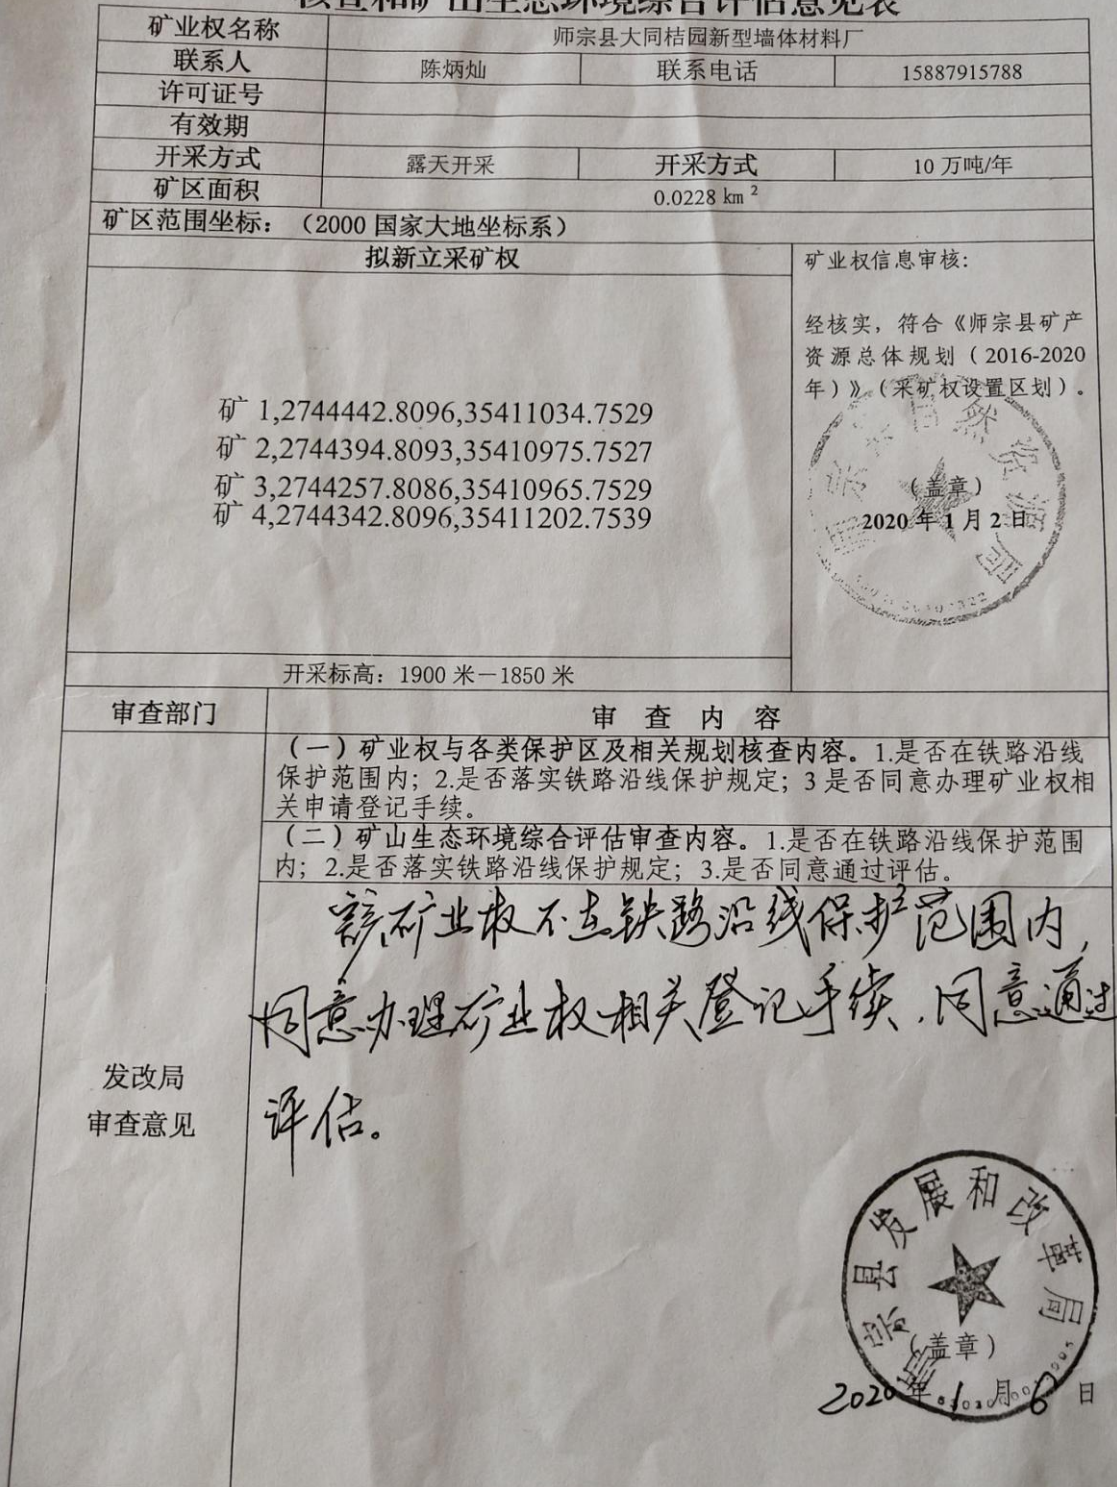 核查和矿山生态环境综合评估意见表
矿业权名称 师宗县大同桔园新型墙体材料厂
联系人 陈炳灿 联系电话 15887915788
许可证号
有效期
开采方式 露天开采 开采方式 10 万吨/年
矿区面积 0.0228 km²
矿区范围坐标：（2000 国家大地坐标系）
拟新立采矿权
矿 1,2744442.8096,35411034.7529
矿 2,2744394.8093,35410975.7527
矿 3,2744257.8086,35410965.7529
矿 4,2744342.8096,35411202.7539
开采标高：1900 米－1850 米
矿业权信息审核：
经核实，符合《师宗县矿产
资源总体规划（2016-2020
年）》（采矿权设置区划）。
师宗县自然资源局
（盖章）
2020 年 1 月 2 日
审查部门 审 查 内 容
（一）矿业权与各类保护区及相关规划核查内容。1.是否在铁路沿线
保护范围内；2.是否落实铁路沿线保护规定；3 是否同意办理矿业权相
关申请登记手续。
（二）矿山生态环境综合评估审查内容。1.是否在铁路沿线保护范围
内；2.是否落实铁路沿线保护规定；3.是否同意通过评估。
发改局
审查意见
该矿业权不在铁路沿线保护范围内，
同意办理矿业权相关登记手续，同意通过
评估。
师宗县发展和改革局
（盖章）
2020 年 1 月 6 日